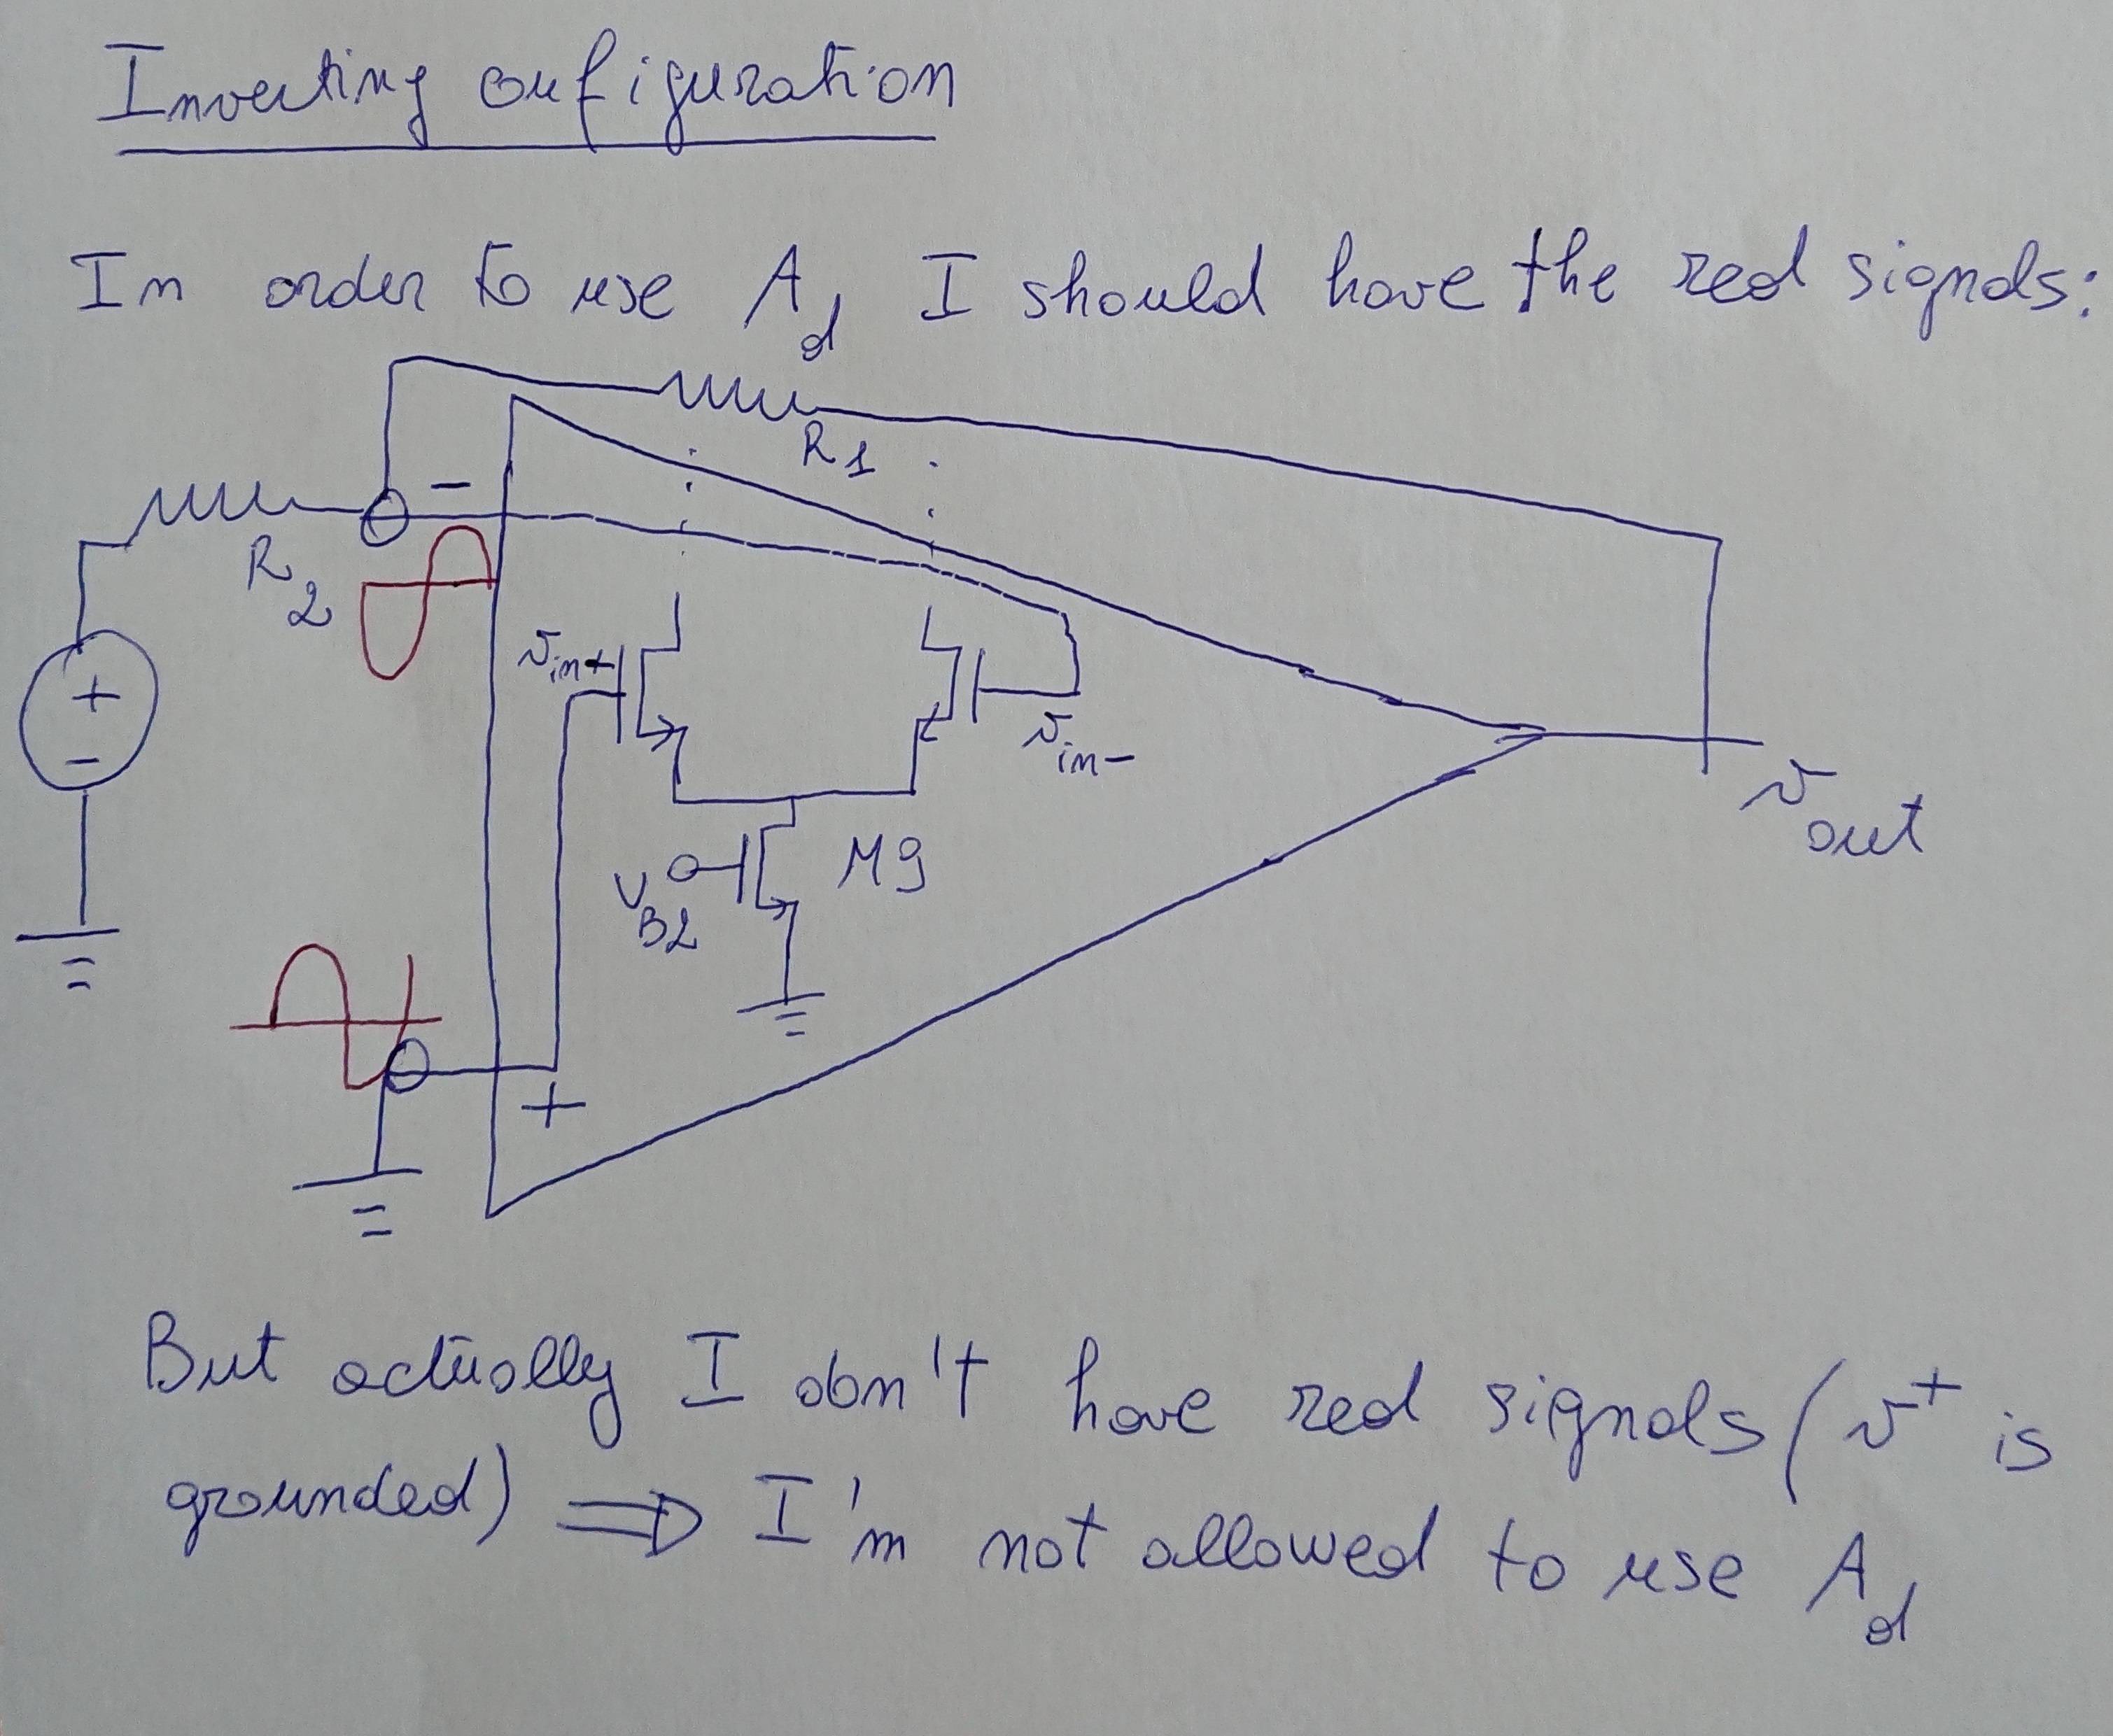 Inverting configuration
In order to use Ad I should have the red signals:
R1
-
R2
vin+
+
-
vin-
vout
M9
VB2
+
But actually I don't have red signals (v+ is
grounded) ⇒ I'm not allowed to use Ad